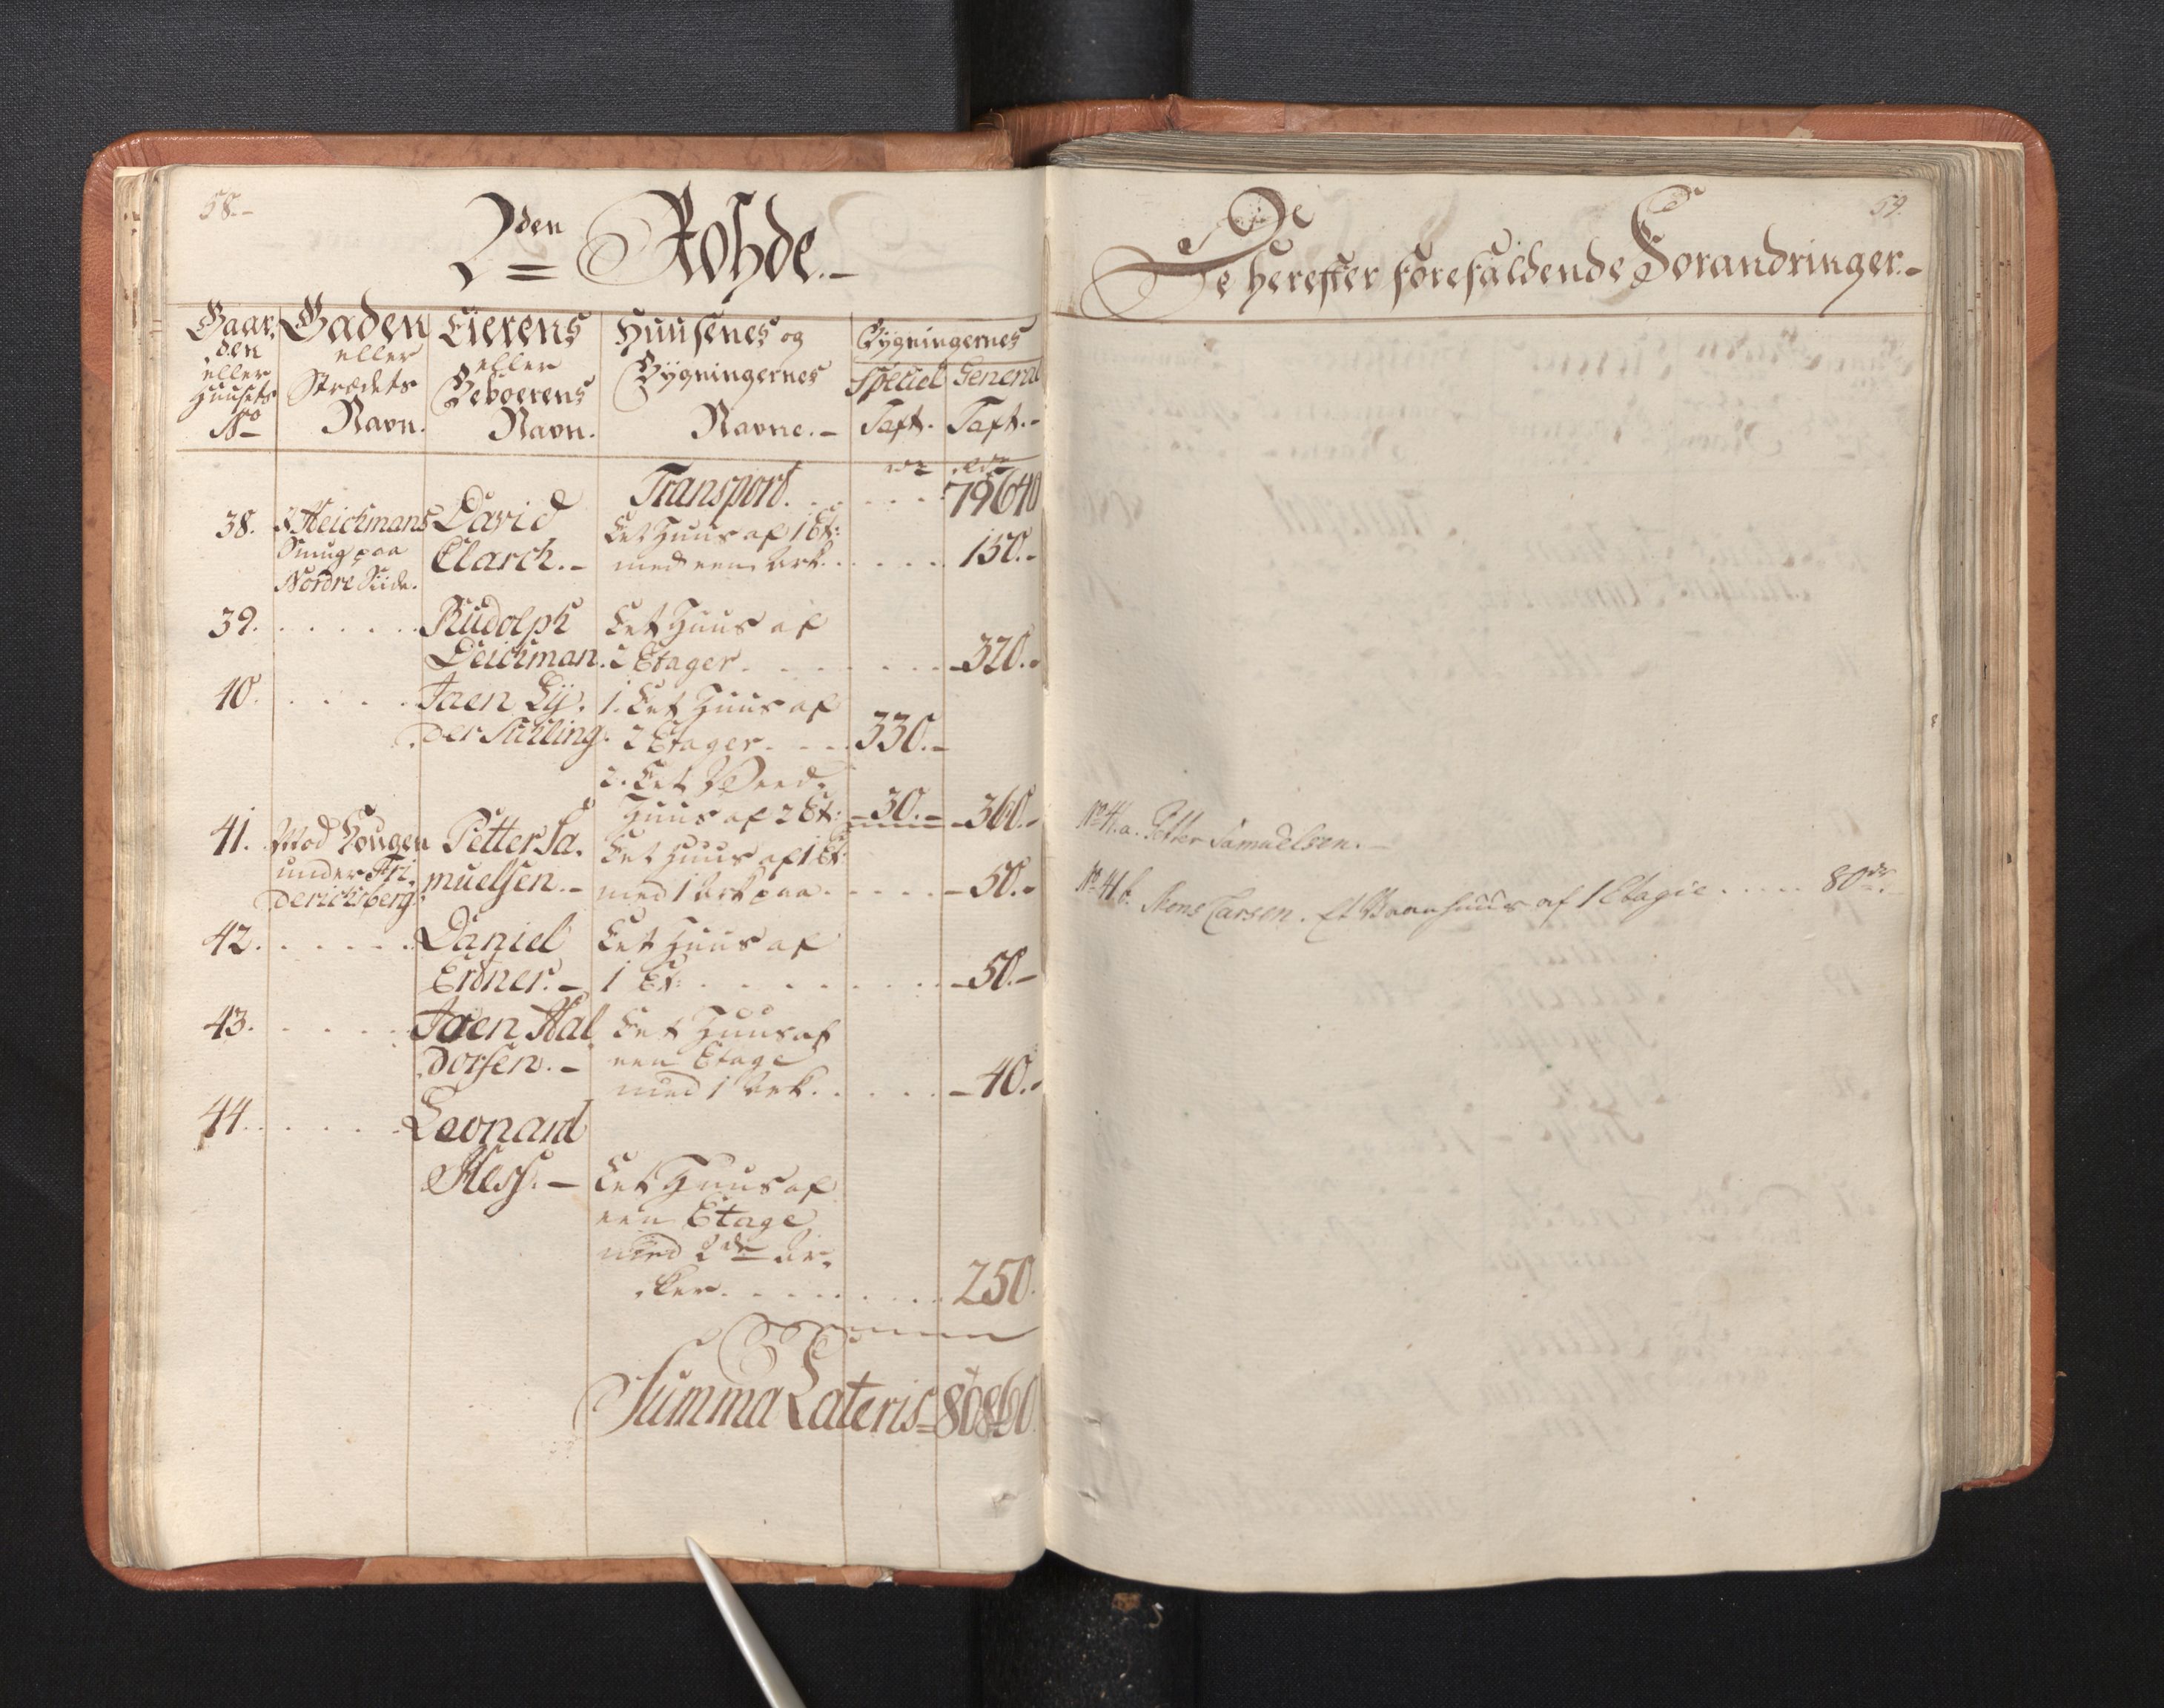 58.-
2den Rohde.-
Gaar,
den
eller
Huusets
No
Gaden
eller
Strædets
Navn.
Eierens
eller
Beboerens
Navn.
Huusenes og
Bygningernes
Navne.-
Bygningernes
Speciel General
Taxt. Taxt.-
rdr rdr
Transport. . . . . . . 79640
38. I Heichmans David Eet Huus af 1 Et:
Smug paa Clarch.- med een Ark. . . . . . 150.-
Nordre Siide.
39. . . . . . . Rudolph Eet Huus af
Deichman. 2 Etager. . . . . . . -320.-
40. . . . . Jaen Ly, 1. Eet Huus af
der 2 Etager. . . . 330.-
2. Eet Veed,
Huus af 2 Et: -30.- -360.-
41. Mod Hougen Petter Sa, Eet Huus af 1 Et:
under Fri, muelsen.- med 1 Ark paa . . . . . -50.-
derichsberg.
42. . . . . . . Daniel Eet Huus af
Erdner.- 1 Et: . . . . . . . . -50.-
43. . . . . . Jaen Hal Eet Huus af
dorsen.- een Etage
med 1 Ark. . . . . . -40.-
44. . . . . . Leonard
Hess.- Eet Huus af
een Etage
med 2de Ar,
ker. . . . . . . . . 250.
Summa Lateris= 80860
59.
De
De herefter forefaldende Forandringer.-
No 41. a. Petter Samuelsen.-
No 41 b. Mons Larsen. Et Vaanhuus af 1 Etagie . . . . . 80 rdr.